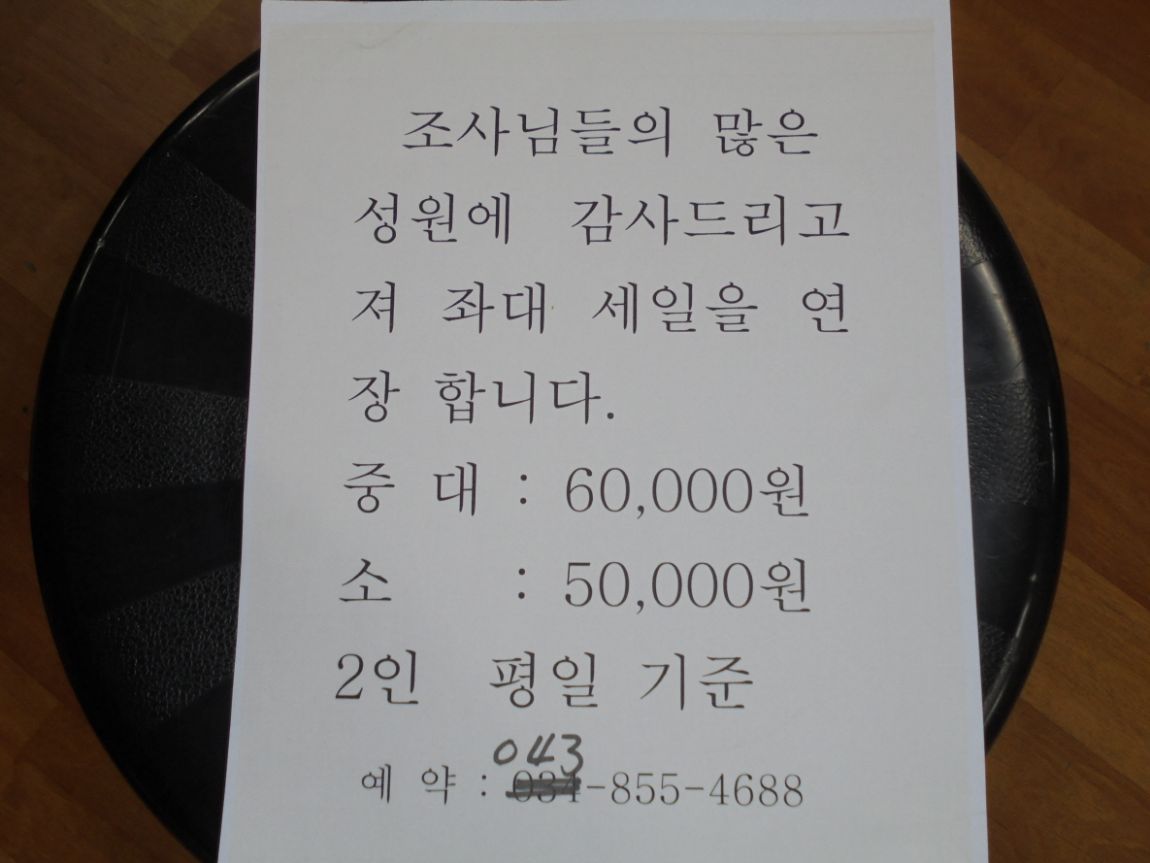 조사님들의 많은
성원에 감사드리고
져 좌대 세일을 연
장 합니다.
중 대 : 60,000원
소 : 50,000원
2인 평일 기준
043
예 약 : 034-855-4688